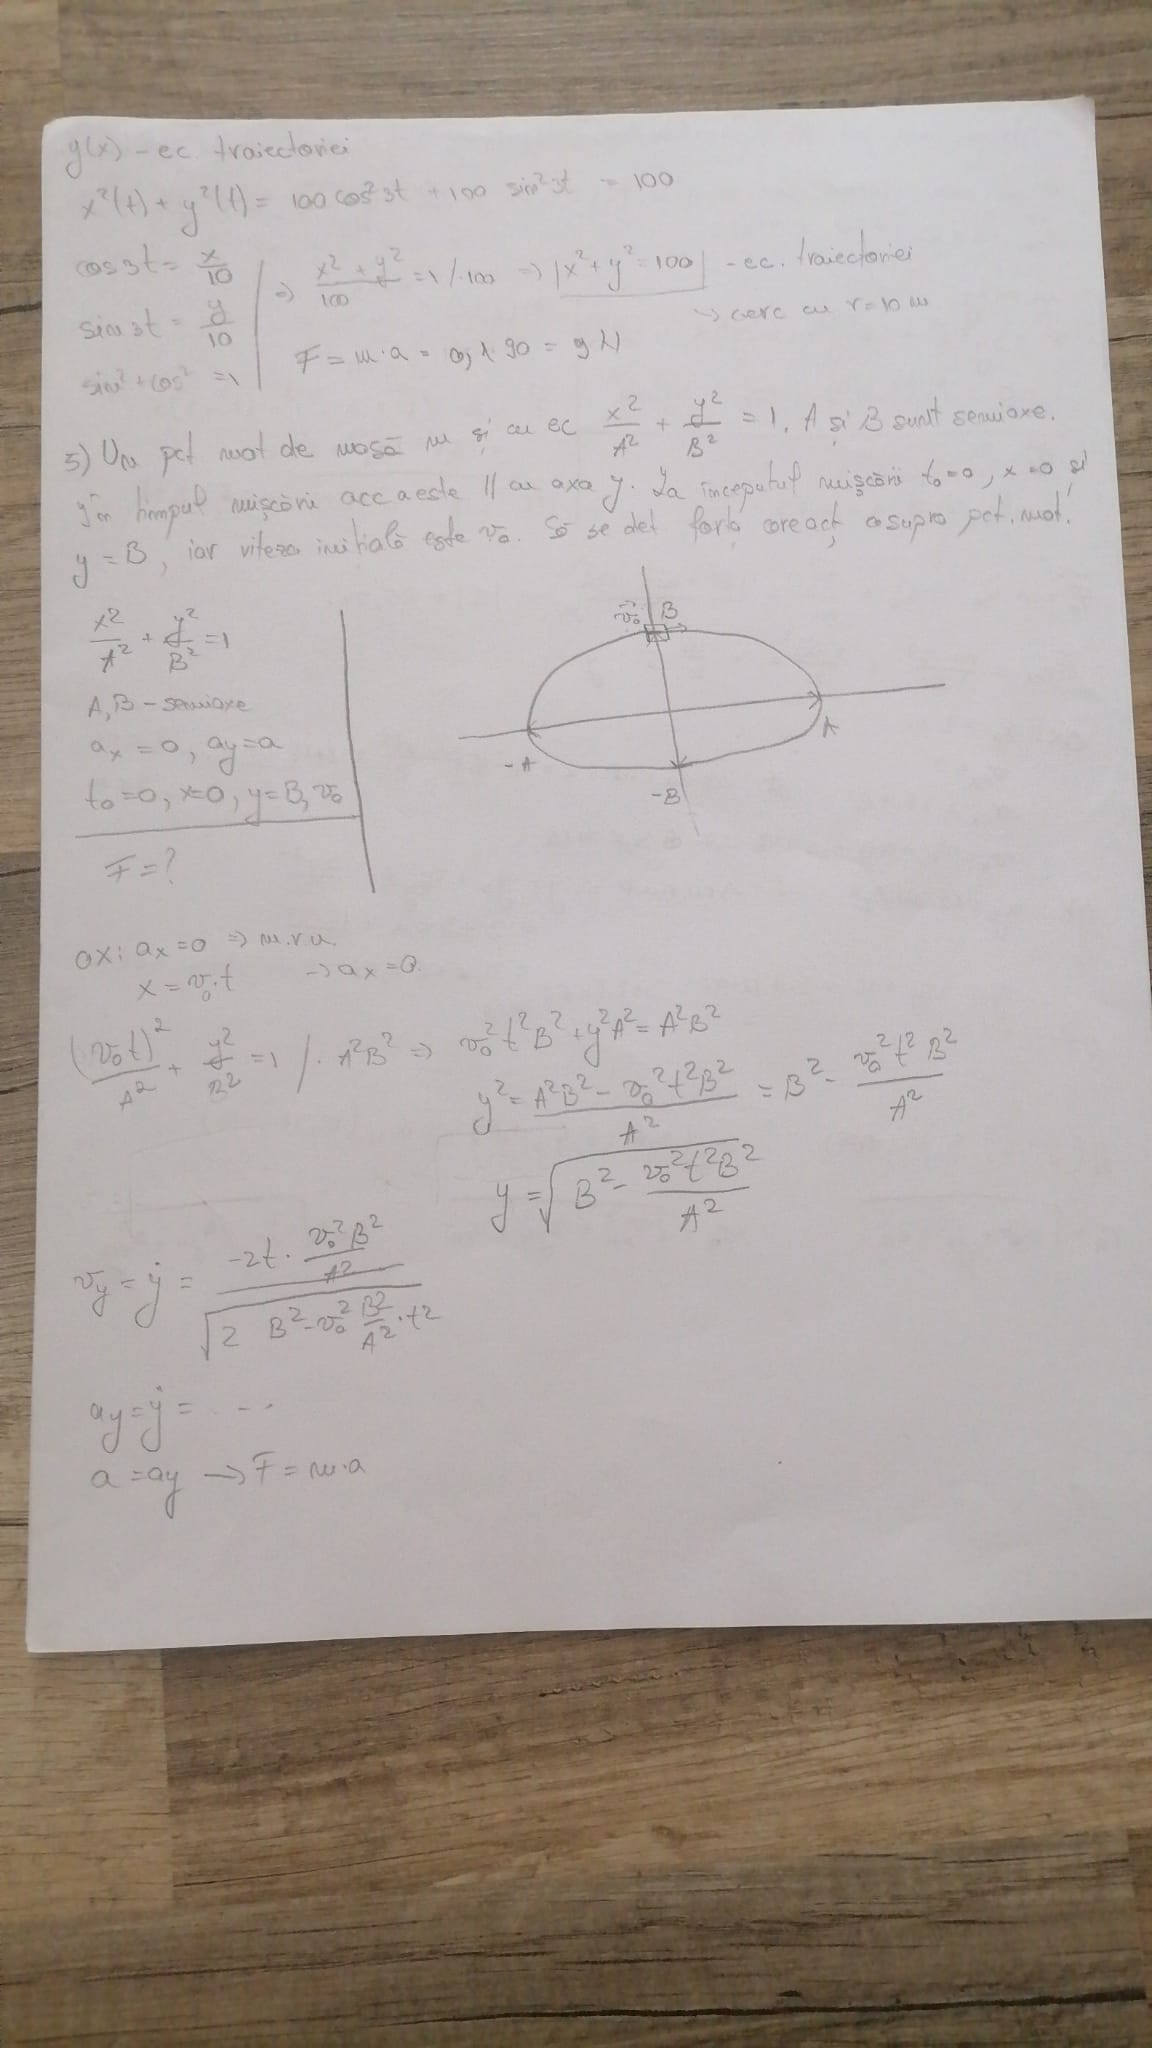 y(x) - ec. traiectoriei
x²(t) + y²(t) = 100 cos²3t + 100 sin²3t = 100
cos3t = x/10
sin3t = y/10
sin² + cos² = 1
=> (x² + y²)/100 = 1 /·100 => |x² + y² = 100| - ec. traiectoriei
-> cerc cu r = 10 m
F = m·a = 0,1·90 = 9 N
5) Un pct mat de masă m și cu ec x²/A² + y²/B² = 1. A și B sunt semiaxe.
În timpul mișcării acc a este // cu axa y. La începutul mișcării t₀=0, x=0 și
y = B, iar viteza inițială este v₀. Să se det forța care acț asupra pct. mat.
x²/A² + y²/B² = 1
A, B - semiaxe
ax = 0, ay = a
t₀=0, x=0, y=B, v₀
F = ?
v₀ B
A
-A
-B
ox: ax = 0 => m.r.u.
x = v₀·t -> ax = 0
(v₀t)²/A² + y²/B² = 1 /· A²B² => v₀²t²B² + y²A² = A²B²
y² = (A²B² - v₀²t²B²)/A² = B² - v₀²t²B²/A²
y = √(B² - v₀²t²B²/A²)
vy = ẏ = (-2t · v₀²B²/A²)/√(2 B² - v₀² B²/A² · t²)
ay = ẏ = . . . .
a = ay -> F = m·a